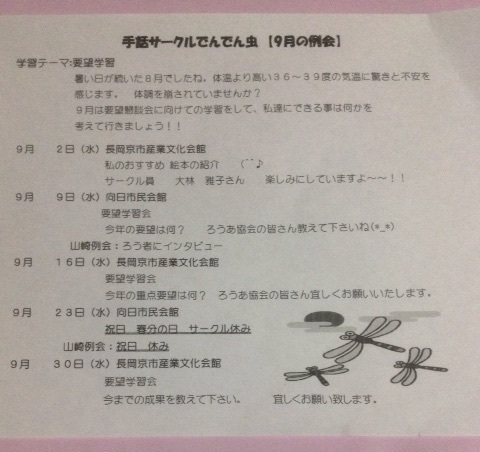 手話サークルでんでん虫【9月の例会】
学習テーマ:要望学習
暑い日が続いた8月でしたね。体温より高い36～39度の気温に驚きと不安を
感じます。 体調を崩されていませんか?
9月は要望懇談会に向けての学習をして、私達にできる事は何かを
考えて行きましょう!!
9月 2日(水)長岡京市産業文化会館
私のおすすめ 絵本の紹介 (^^♪
サークル員 大林 雅子さん 楽しみにしていますよ～～!!
9月 9日(水)向日市民会館
要望学習会
今年の要望は何? ろうあ協会の皆さん教えて下さいね(*_*)
山崎例会:ろう者にインタビュー
9月 16日(水)長岡京市産業文化会館
要望学習会
今年の重点要望は何? ろうあ協会の皆さん宜しくお願いいたします。
9月 23日(水)向日市民会館
祝日 春分の日 サークル休み
山崎例会:祝日 休み
9月 30日(水)長岡京市産業文化会館
要望学習会
今までの成果を教えて下さい。 宜しくお願い致します。